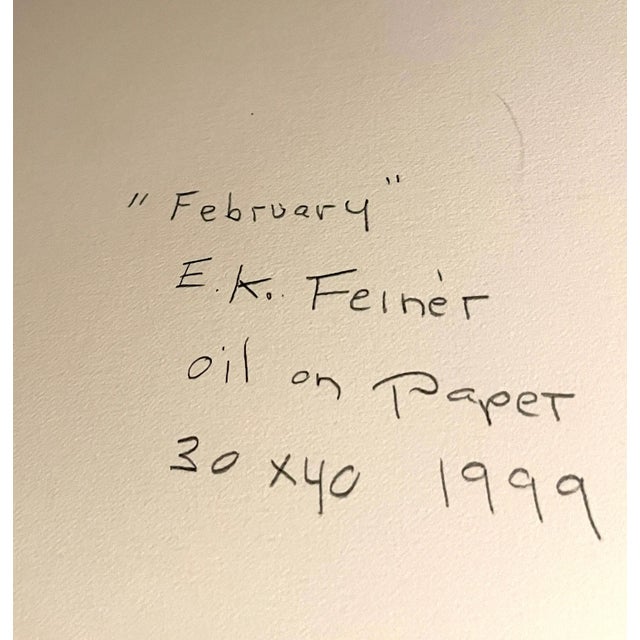 "February"
E.K. Feinér
oil on Paper
30 x40 1999